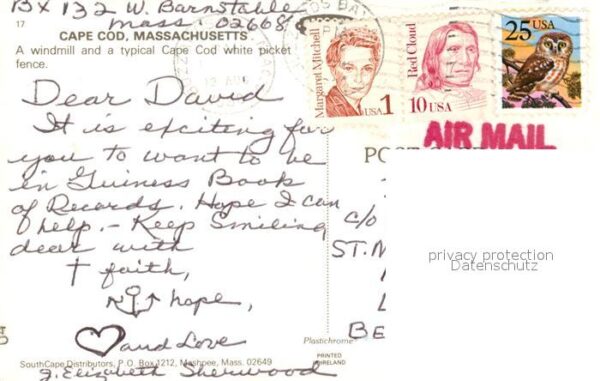 Bx 132 W. Barnstable
Mass. 02668
17
CAPE COD, MASSACHUSETTS
A windmill and a typical Cape Cod white picket
fence.
Dear David
It is exciting for
you to want to be
in Guiness Book
of Records. Hope I can
help. - Keep Smiling
dear with
faith,
hope,
and Love
J. Elizabeth Sherwood
Plastichrome
SouthCape Distributors, P.O. Box 1212, Mashpee, Mass. 02649
PRINTED
IRELAND
Margaret Mitchell
USA 1
Red Cloud
10 USA
25 USA
AIR MAIL
POST
C/O
ST. M
BE
privacy protection
Datenschutz